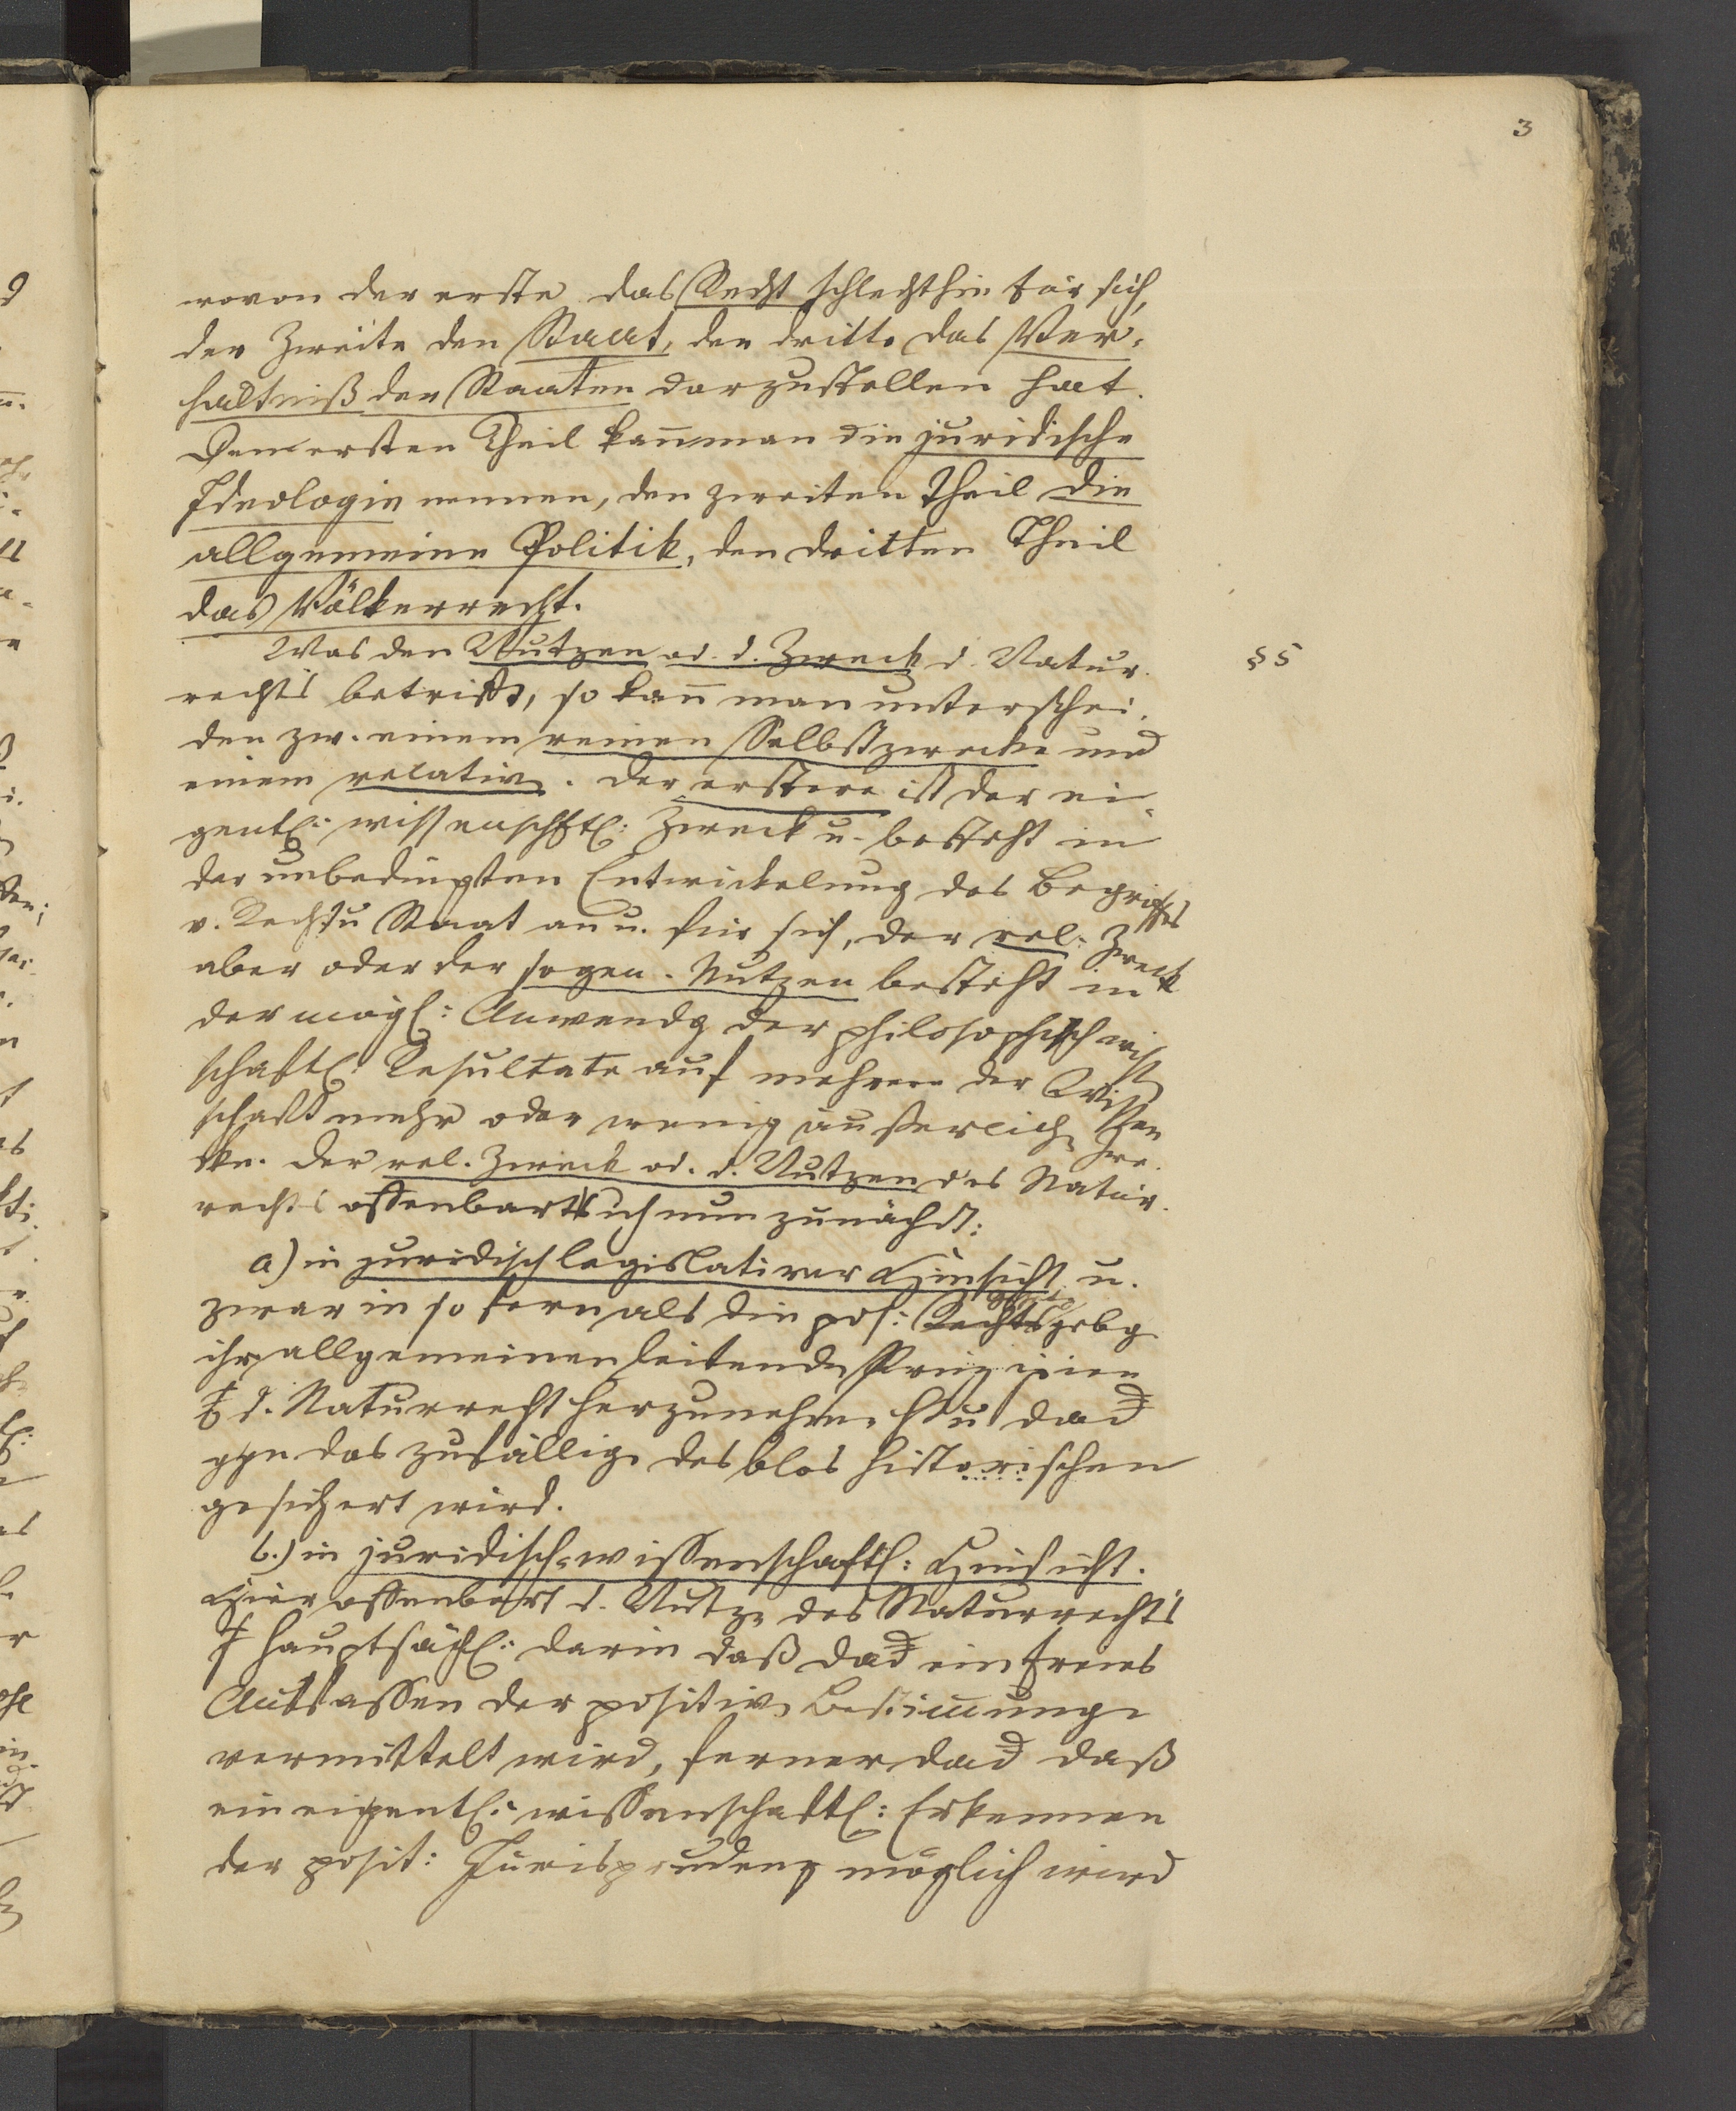 3
wovon der erste das Recht schlechthin für sich,
der zweite den Staat, der dritte das Ver-
hältniß der Staaten darzustellen hat.
Den ersten Theil kan̄ man die juridische
Ideologie nennen, den zweiten Theil die
allgemeine Politik, den dritten Theil
das Völkerrecht.
§ 5
Was den Nutzen od. d. Zweck d. Natur-
rechts betrifft, so kan̄ man unterschei-
den zw. einem reinen Selbstzwecke und
einem relativ. Der erstere ist der ei-
gentl: wissenschftl: Zweck u. besteht in
der unbedingten Entwickelung des Begriffes
v. Recht u Staat an u. für sich, der rel: Zweck
aber oder der sogen. Nutzen besteht in
der mögl: Anwendg der philosophisch wiss
schaftl. Resultate auf mehrere der Wissen
schaft mehr oder wenig äußerlich Zwe-
cke. Der rel. Zweck od. d. Nutzen des Natur-
rechts offenbart sich nun zunächst:
a) in juridisch legislativer Hinsicht u.
zwar in so fern als die pos: Rechtsgebg
ihre allgemeinen leitende Prinzipien
d. Naturrecht herzunehmen hat u dad
ggn das zufällige des blos historischen
gesichert wird.
b.) in juridisch-wissenschaftl: Hinsicht.
Hier offenbart d. Nutze des Naturrechts
hauptsächl: darin daß dad ein freies
Auffassen der positiv Bestim̄unge
vermittelt wird, ferner dad daß
ein eigentl: wissenschaftl: Erkennen
der posit: Jurisprudenz möglich wird